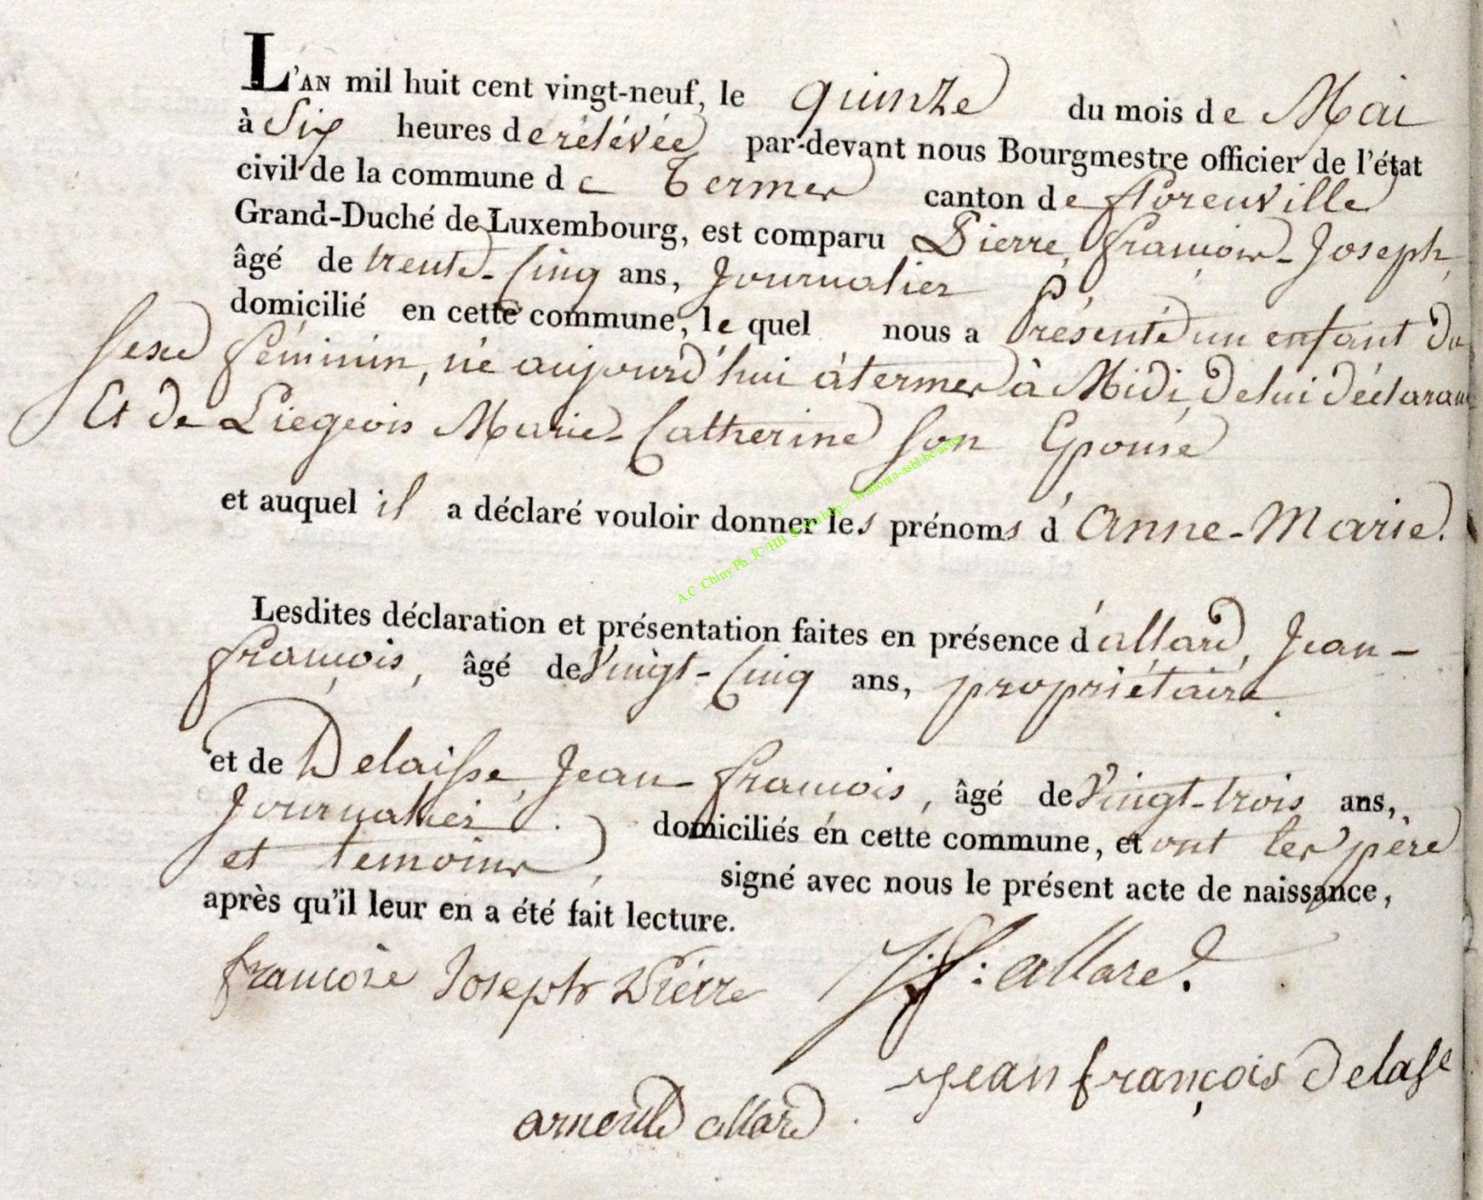 L'AN mil huit cent vingt-neuf, le quinze du mois de Mai
à Six heures de rélévée par-devant nous Bourgmestre officier de l'état
civil de la commune de Termes canton de florenville
Grand-Duché de Luxembourg, est comparu Pierre, françois-Joseph,
âgé de trente-Cinq ans, Journalier
domicilié en cette commune, le quel nous a Présenté un enfant du
Sexe féminin, né aujourd'hui à termes à Midi, de lui déclarant
Et de Liegeois Marie-Catherine Son Epouse
et auquel il a déclaré vouloir donner les prénoms d'Anne-Marie.
A.C Chiny Ph. JC HH
Lesdites déclaration et présentation faites en présence d'allard, Jean-
françois, âgé de Vingt-Cinq ans, propriétaire
et de Delaisse, Jean-françois, âgé de Vingt-trois ans,
Journalier. domiciliés en cette commune, et ont les père
et temoins, signé avec nous le présent acte de naissance,
après qu'il leur en a été fait lecture.
francois Joseph Pierre J:f: allard.
jean françois Delasse
arnould allard